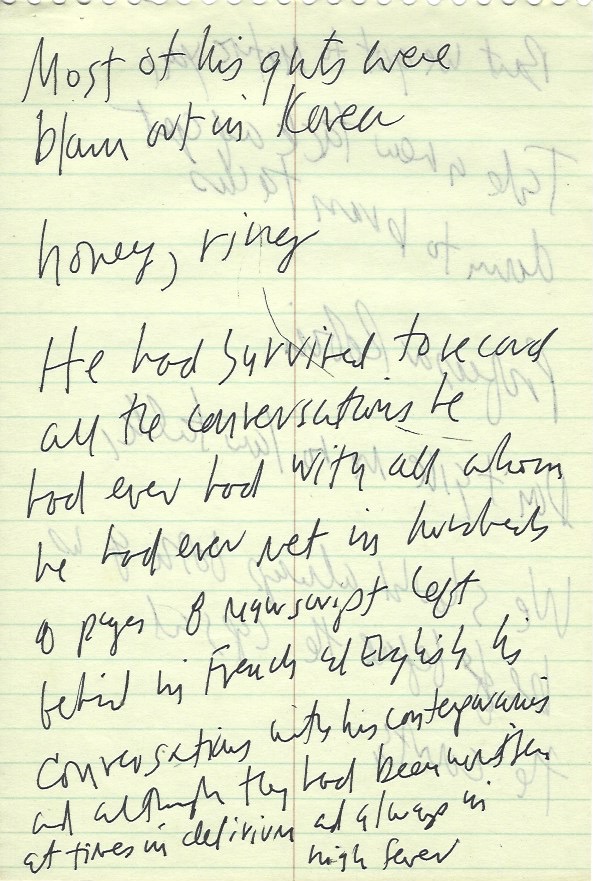 Most of his guts were
blown out in Korea
honey, ring
He had survived to record
all the conversations he
had ever had with all whom
he had ever met in hundreds
of pages of manuscript left
behind in French and English his
conversations with his contemporaries
and although they had been written
at times in delirium and always in
high fever